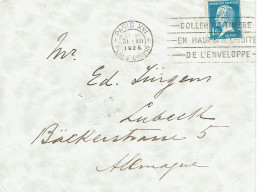 PARIS XVI
21-XII
1926
COLLER LE TIMBRE
EN HAUT A DROITE
DE L'ENVELOPPE
Mr.
Ed. Jürgens
Lubeck
Bäckerstrasse 5
Allemagne